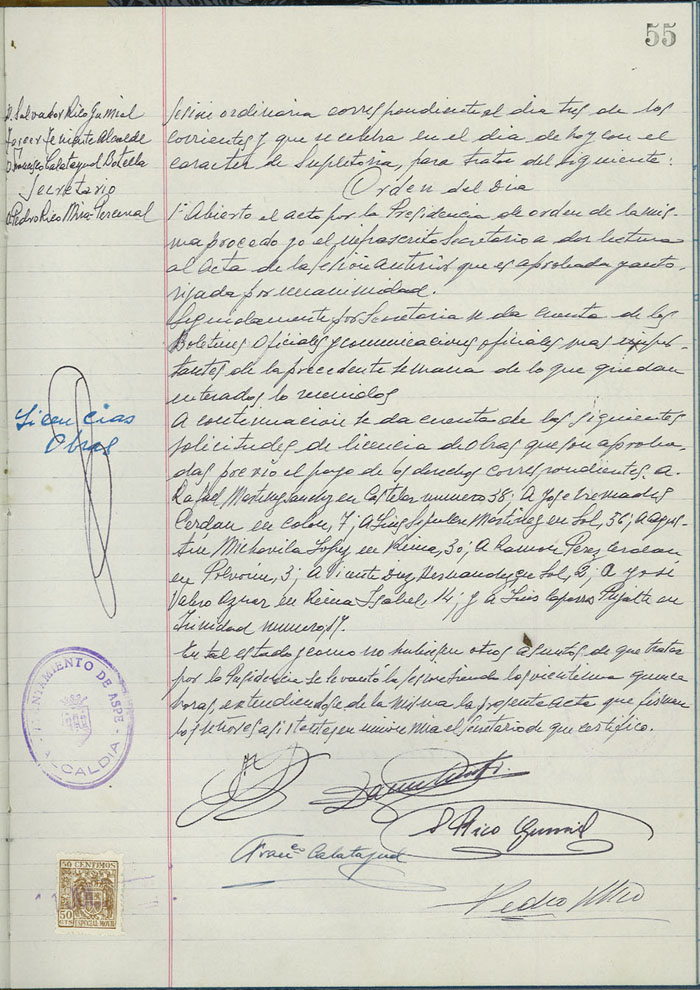 55
D. Salvador Rico Gumiel
Tercer Teniente Alcalde
D. Francisco Calatayud Botella
Secretario
D. Pedro Rico Mira-Perceval
Sesion ordinaria correspondiente al dia tres de los
corrientes y que se celebra en el dia de hoy con el
caracter de Supletoria, para tratar del siguiente:
Orden del Dia
1º Abierto el acto por la Presidencia de orden de la mis-
ma procedo yo el infrascrito Secretario a dar lectura
al Acta de la sesion anterior que es aprobada y auto-
rizada por unanimidad.
Seguidamente por Secretaria se da cuenta de los
Boletines Oficiales y comunicaciones oficiales mas impor-
tantes de la precedente semana de lo que quedan
enterados los reunidos
Licencias
Obras
A continuacion se da cuenta de las siguientes
solicitudes de licencia de Obras que son aproba-
das previo el pago de los derechos correspondientes. A
Rafael Martinez en Castelar numero 38; A Jose
Cerdan en Colon, 7; A Luis Sepulcre Martinez en Sol, 36; A Agus-
tin Michavila Lopez en Reina, 30; A Ramon Perez Cerdan
en Polvorin, 3; A Vicente Diez Hernandez en Sol, 2; A José
Valero Aznar en Reina Isabel, 14; y a Luis Pujalte en
Trinidad numero 17.
En tal estado y como no hubiesen otros asuntos de que tratar
por la Presidencia se levantó la sesion siendo las veintiuna quince
horas, extendiendose de la misma la presente acta que firman
los señores asistentes en union mia el Secretario de que certifico.
S. Rico Gumiel
Franco Calatayud
Pedro Rico
AYUNTAMIENTO DE ASPE
ALCALDIA
50 CENTIMOS
50 CTS ESPECIAL MOVIL